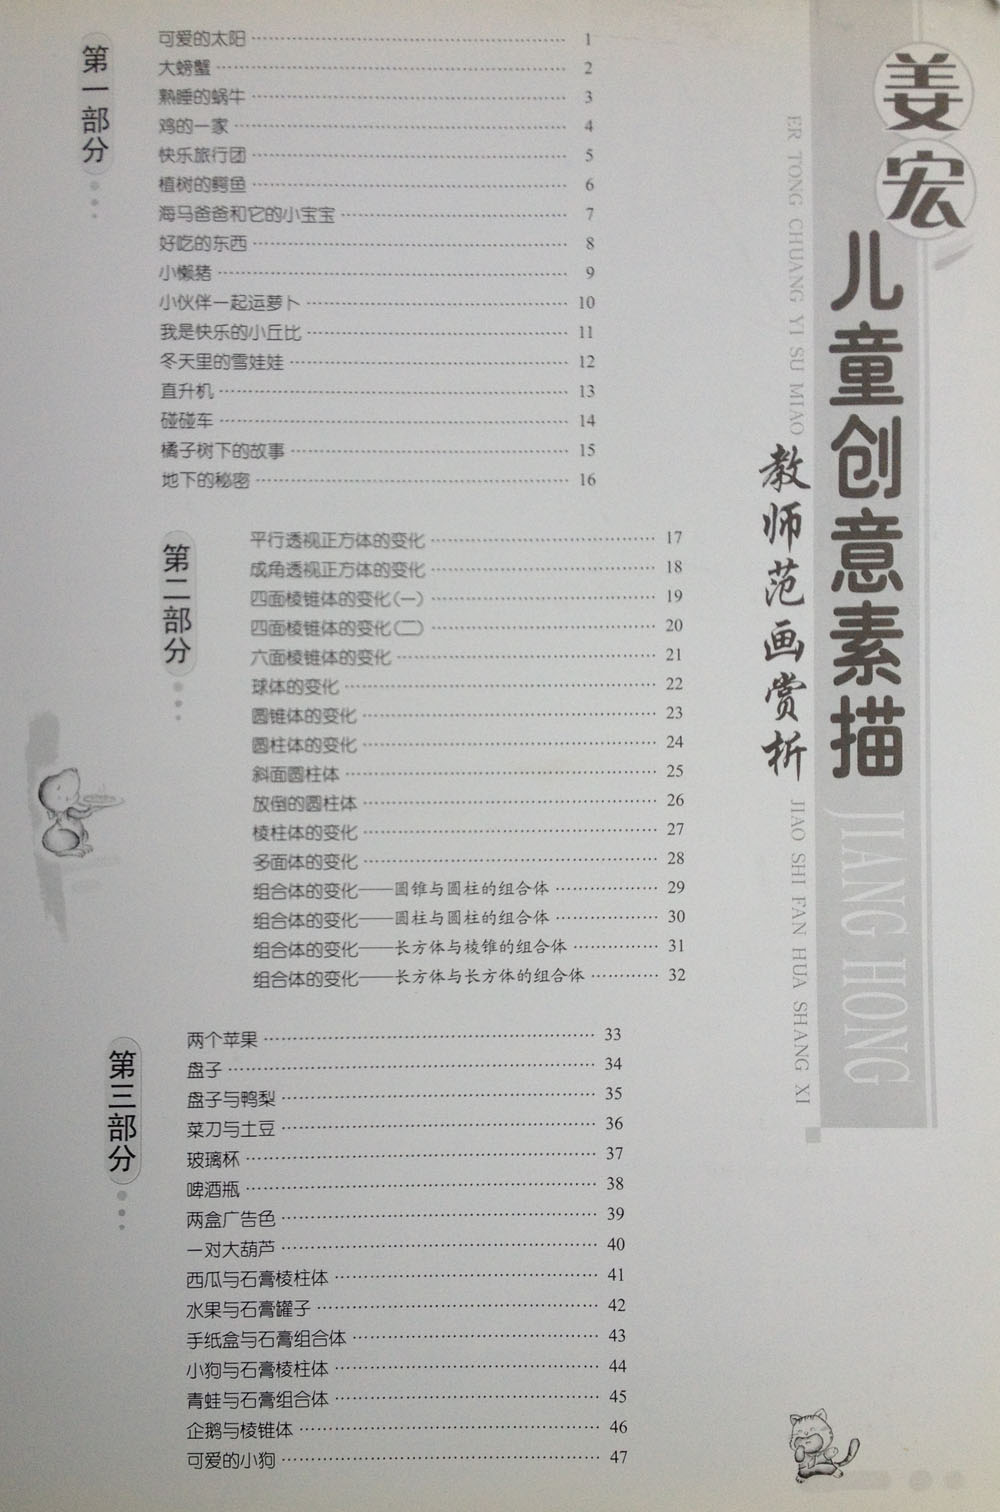 姜宏
儿童创意素描
JIANG HONG
ER TONG CHUANG YI SU MIAO
教师范画赏析
JIAO SHI FAN HUA SHANG XI
第一部分
可爱的太阳 1
大螃蟹 2
熟睡的蜗牛 3
鸡的一家 4
快乐旅行团 5
植树的鳄鱼 6
海马爸爸和它的小宝宝 7
好吃的东西 8
小懒猪 9
小伙伴一起运萝卜 10
我是快乐的小丘比 11
冬天里的雪娃娃 12
直升机 13
碰碰车 14
橘子树下的故事 15
地下的秘密 16
第二部分
平行透视正方体的变化 17
成角透视正方体的变化 18
四面棱锥体的变化(一) 19
四面棱锥体的变化(二) 20
六面棱锥体的变化 21
球体的变化 22
圆锥体的变化 23
圆柱体的变化 24
斜面圆柱体 25
放倒的圆柱体 26
棱柱体的变化 27
多面体的变化 28
组合体的变化——圆锥与圆柱的组合体 29
组合体的变化——圆柱与圆柱的组合体 30
组合体的变化——长方体与棱锥的组合体 31
组合体的变化——长方体与长方体的组合体 32
第三部分
两个苹果 33
盘子 34
盘子与鸭梨 35
菜刀与土豆 36
玻璃杯 37
啤酒瓶 38
两盒广告色 39
一对大葫芦 40
西瓜与石膏棱柱体 41
水果与石膏罐子 42
手纸盒与石膏组合体 43
小狗与石膏棱柱体 44
青蛙与石膏组合体 45
企鹅与棱锥体 46
可爱的小狗 47